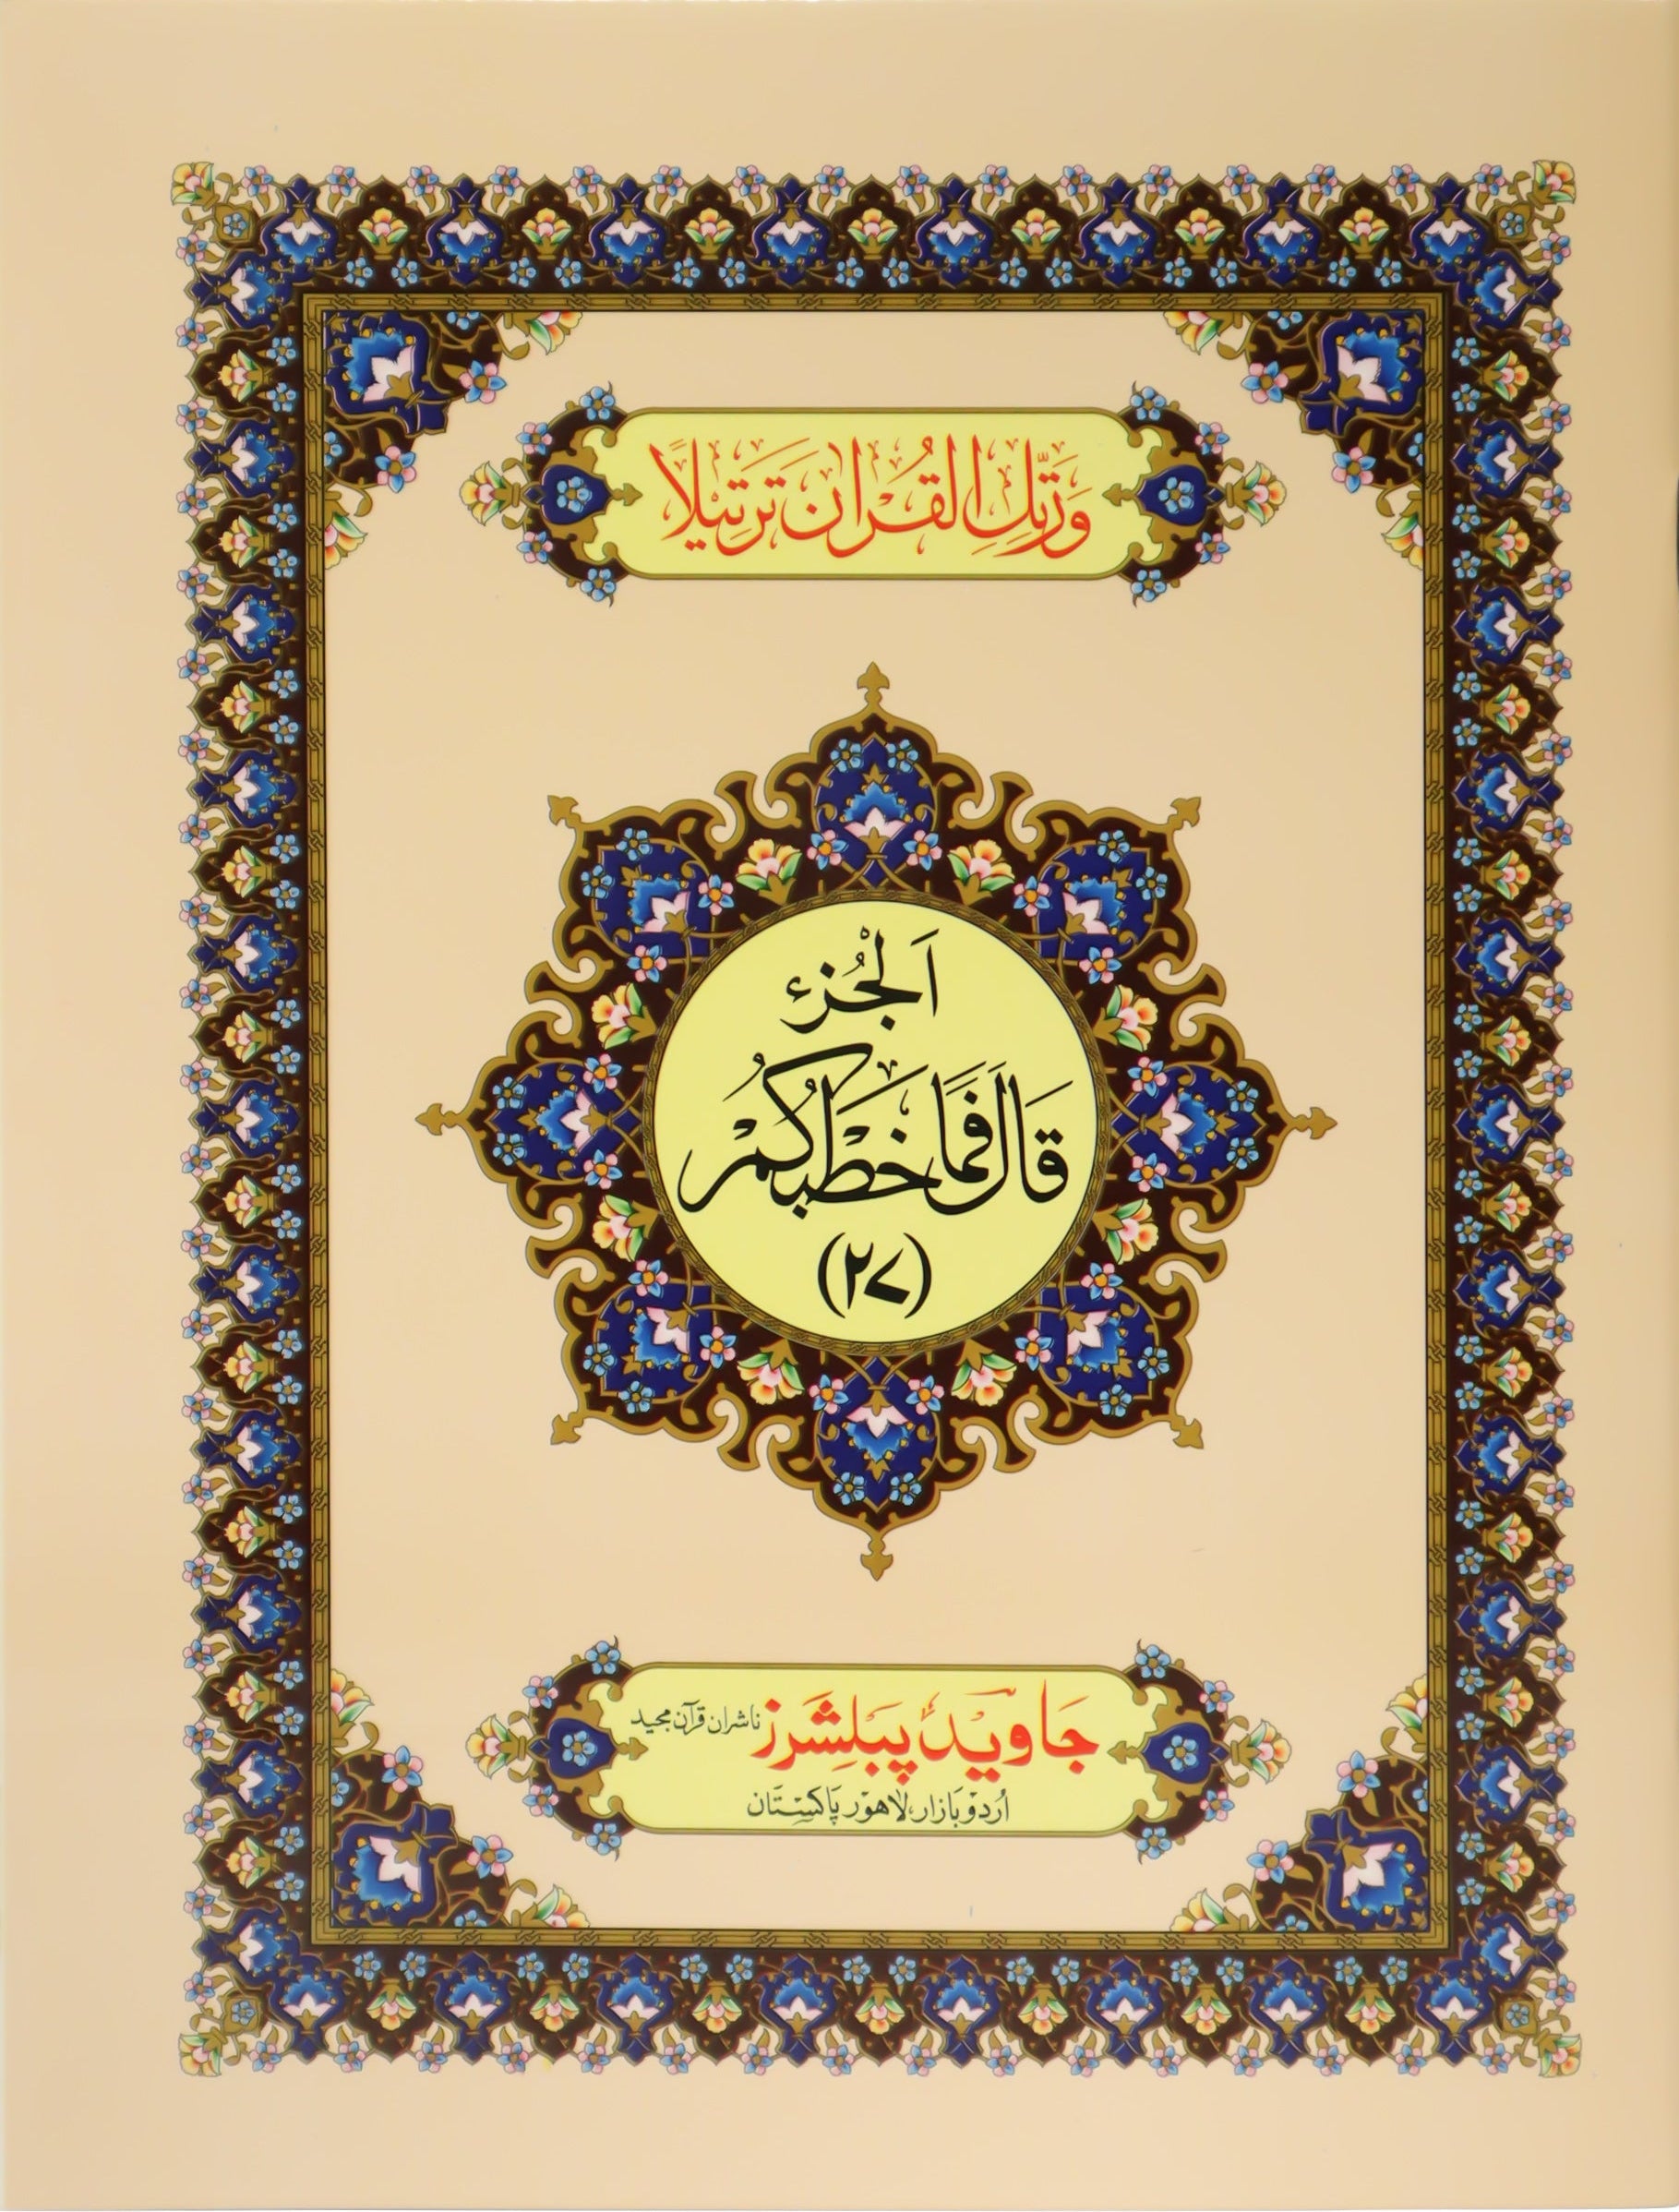 وَرَتِّلِ الْقُرْاٰنَ تَرْتِيْلًا
اَلْجُزء
قَالَ فَمَا خَطْبُكُمْ
(۲۷)
جاوید پبلشرز ناشران قرآن مجید
اُردو بازار، لاہور پاکستان